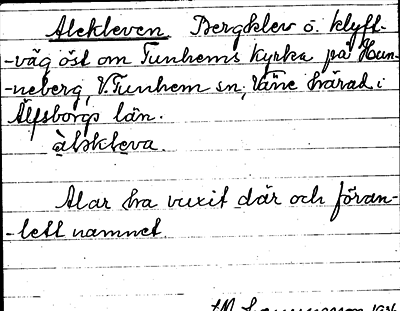 Alekleven. Bergklev o. klyft-
-väg öst om Tunhems Kyrka på Hun-
-neberg, V. Tunhem sn; Väne härad i
Älfsborgs län.
àləkleva.
Alar ha vuxit där och föran-
-lett namnet.